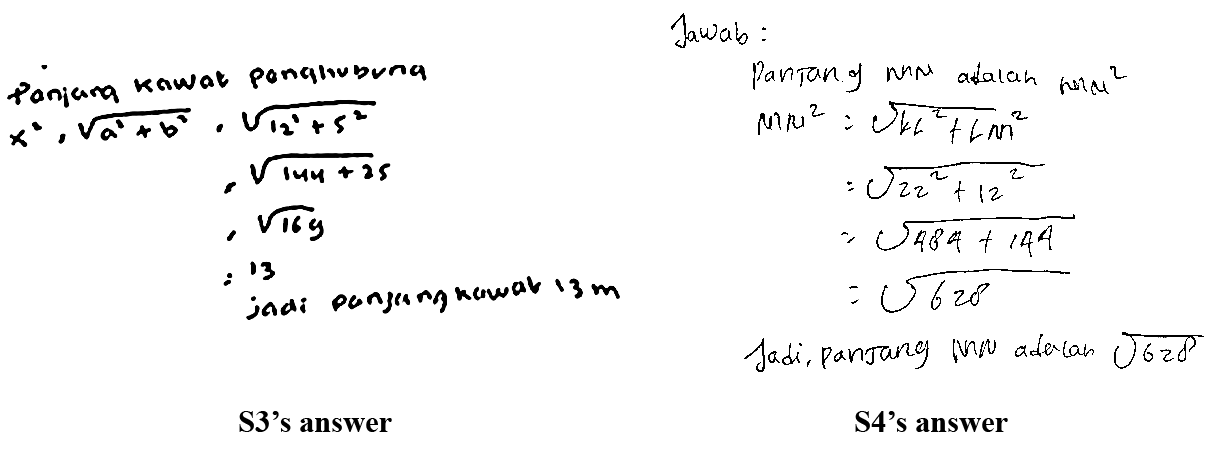 Panjang kawat penghubung
x² = √a² + b² = √12² + 5²
= √144 + 25
= √169
= 13
jadi panjang kawat 13 m
S3's answer
Jawab :
Panjang MN adalah MN²
MN² = √KL² + LM²
= √22² + 12²
= √484 + 144
= √628
Jadi, panjang MN adalah √628
S4's answer